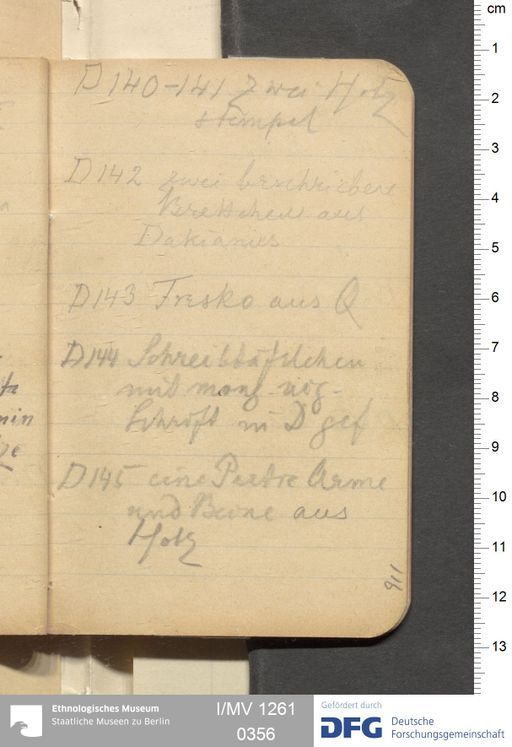 D 140-141 Zwei Holz
stempel
D 142 zwei beschriebene
Brettchen aus
Dakianus
D 143 Fresko aus Q
D 144 Schreibtäfelchen
mit mong. uig.
Schrift in D gef
D 145 eine Arme
und Beine aus
Holz
116
min
cm
1
2
3
4
5
6
7
8
9
10
11
12
13
Ethnologisches Museum
Staatliche Museen zu Berlin
I/MV 1261
0356
Gefördert durch
DFG
Deutsche
Forschungsgemeinschaft